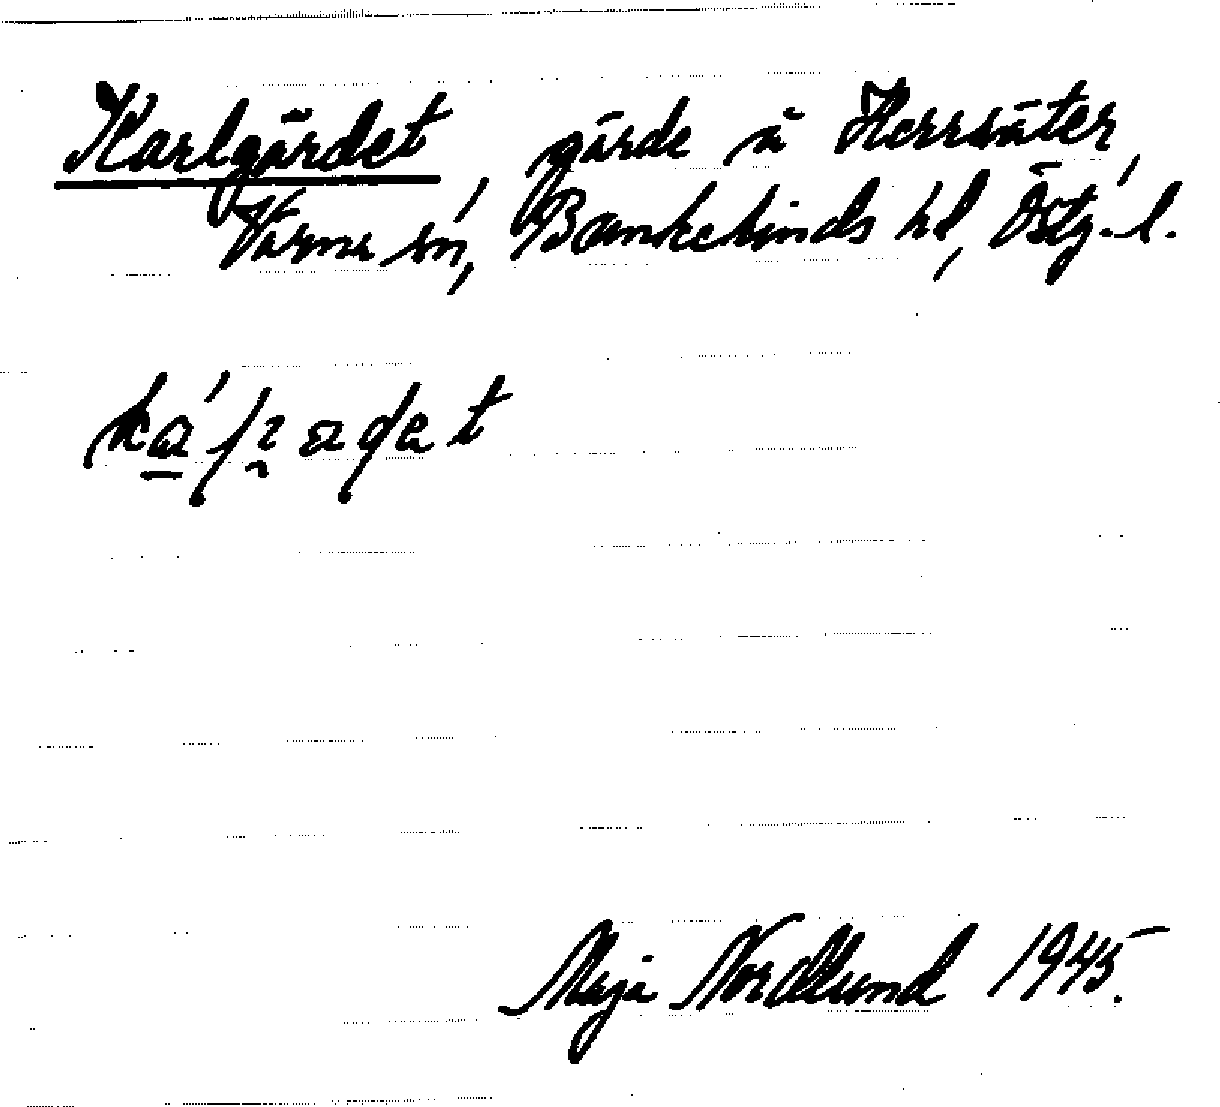 Karlgärdet gärde å Herrsäter,
Värna sn, Bankekinds hd, Östg. l.
Maja Nordlund 1945.